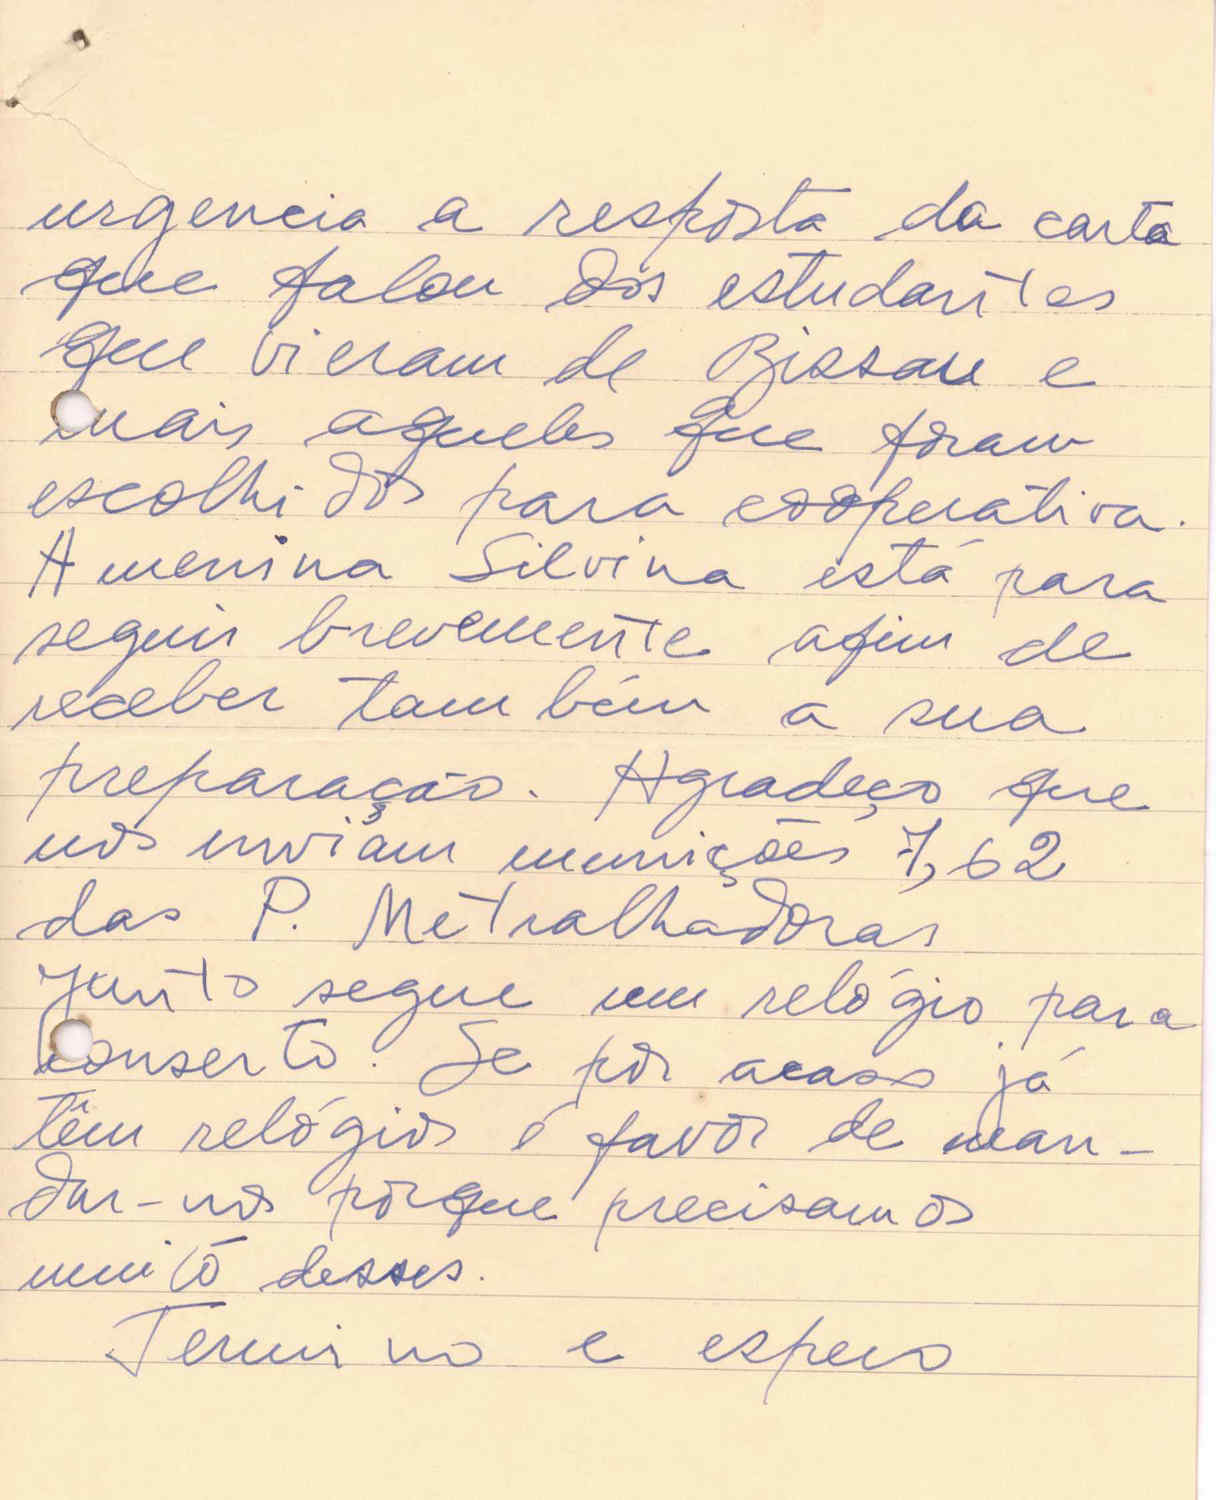 urgencia a resposta da carta
que falou dos estudantes
que vieram de Bissau e
mais aqueles que foram
escolhidos para cooperativa.
A menina Silvina está para
seguir brevemente afim de
receber também a sua
preparação. Agradeço que
nos inviam munições 7,62
das P. Metralhadoras
Junto segue um relógio para
conserto. Se por acaso já
têm relógios é favor de man-
dar-nos porque precisamos
muito desses.
Termino e espero